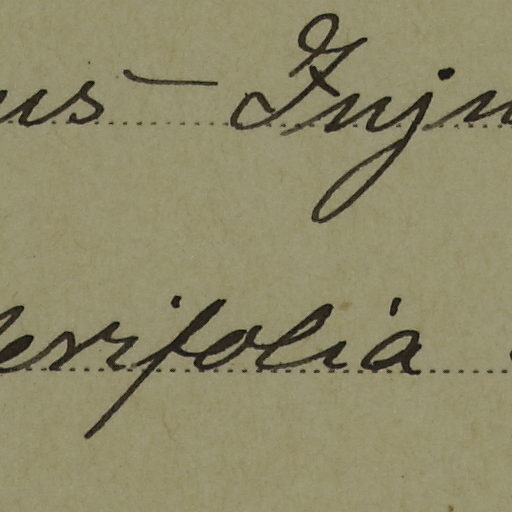 us – Injn
erifolia